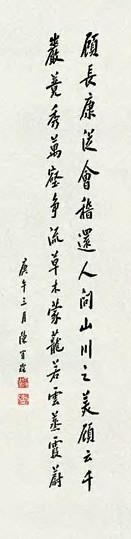 顧長康從會稽還人問山川之美顧云千
巖競秀萬壑爭流草木蒙蘢若雲蒸霞蔚
庚午三月陳